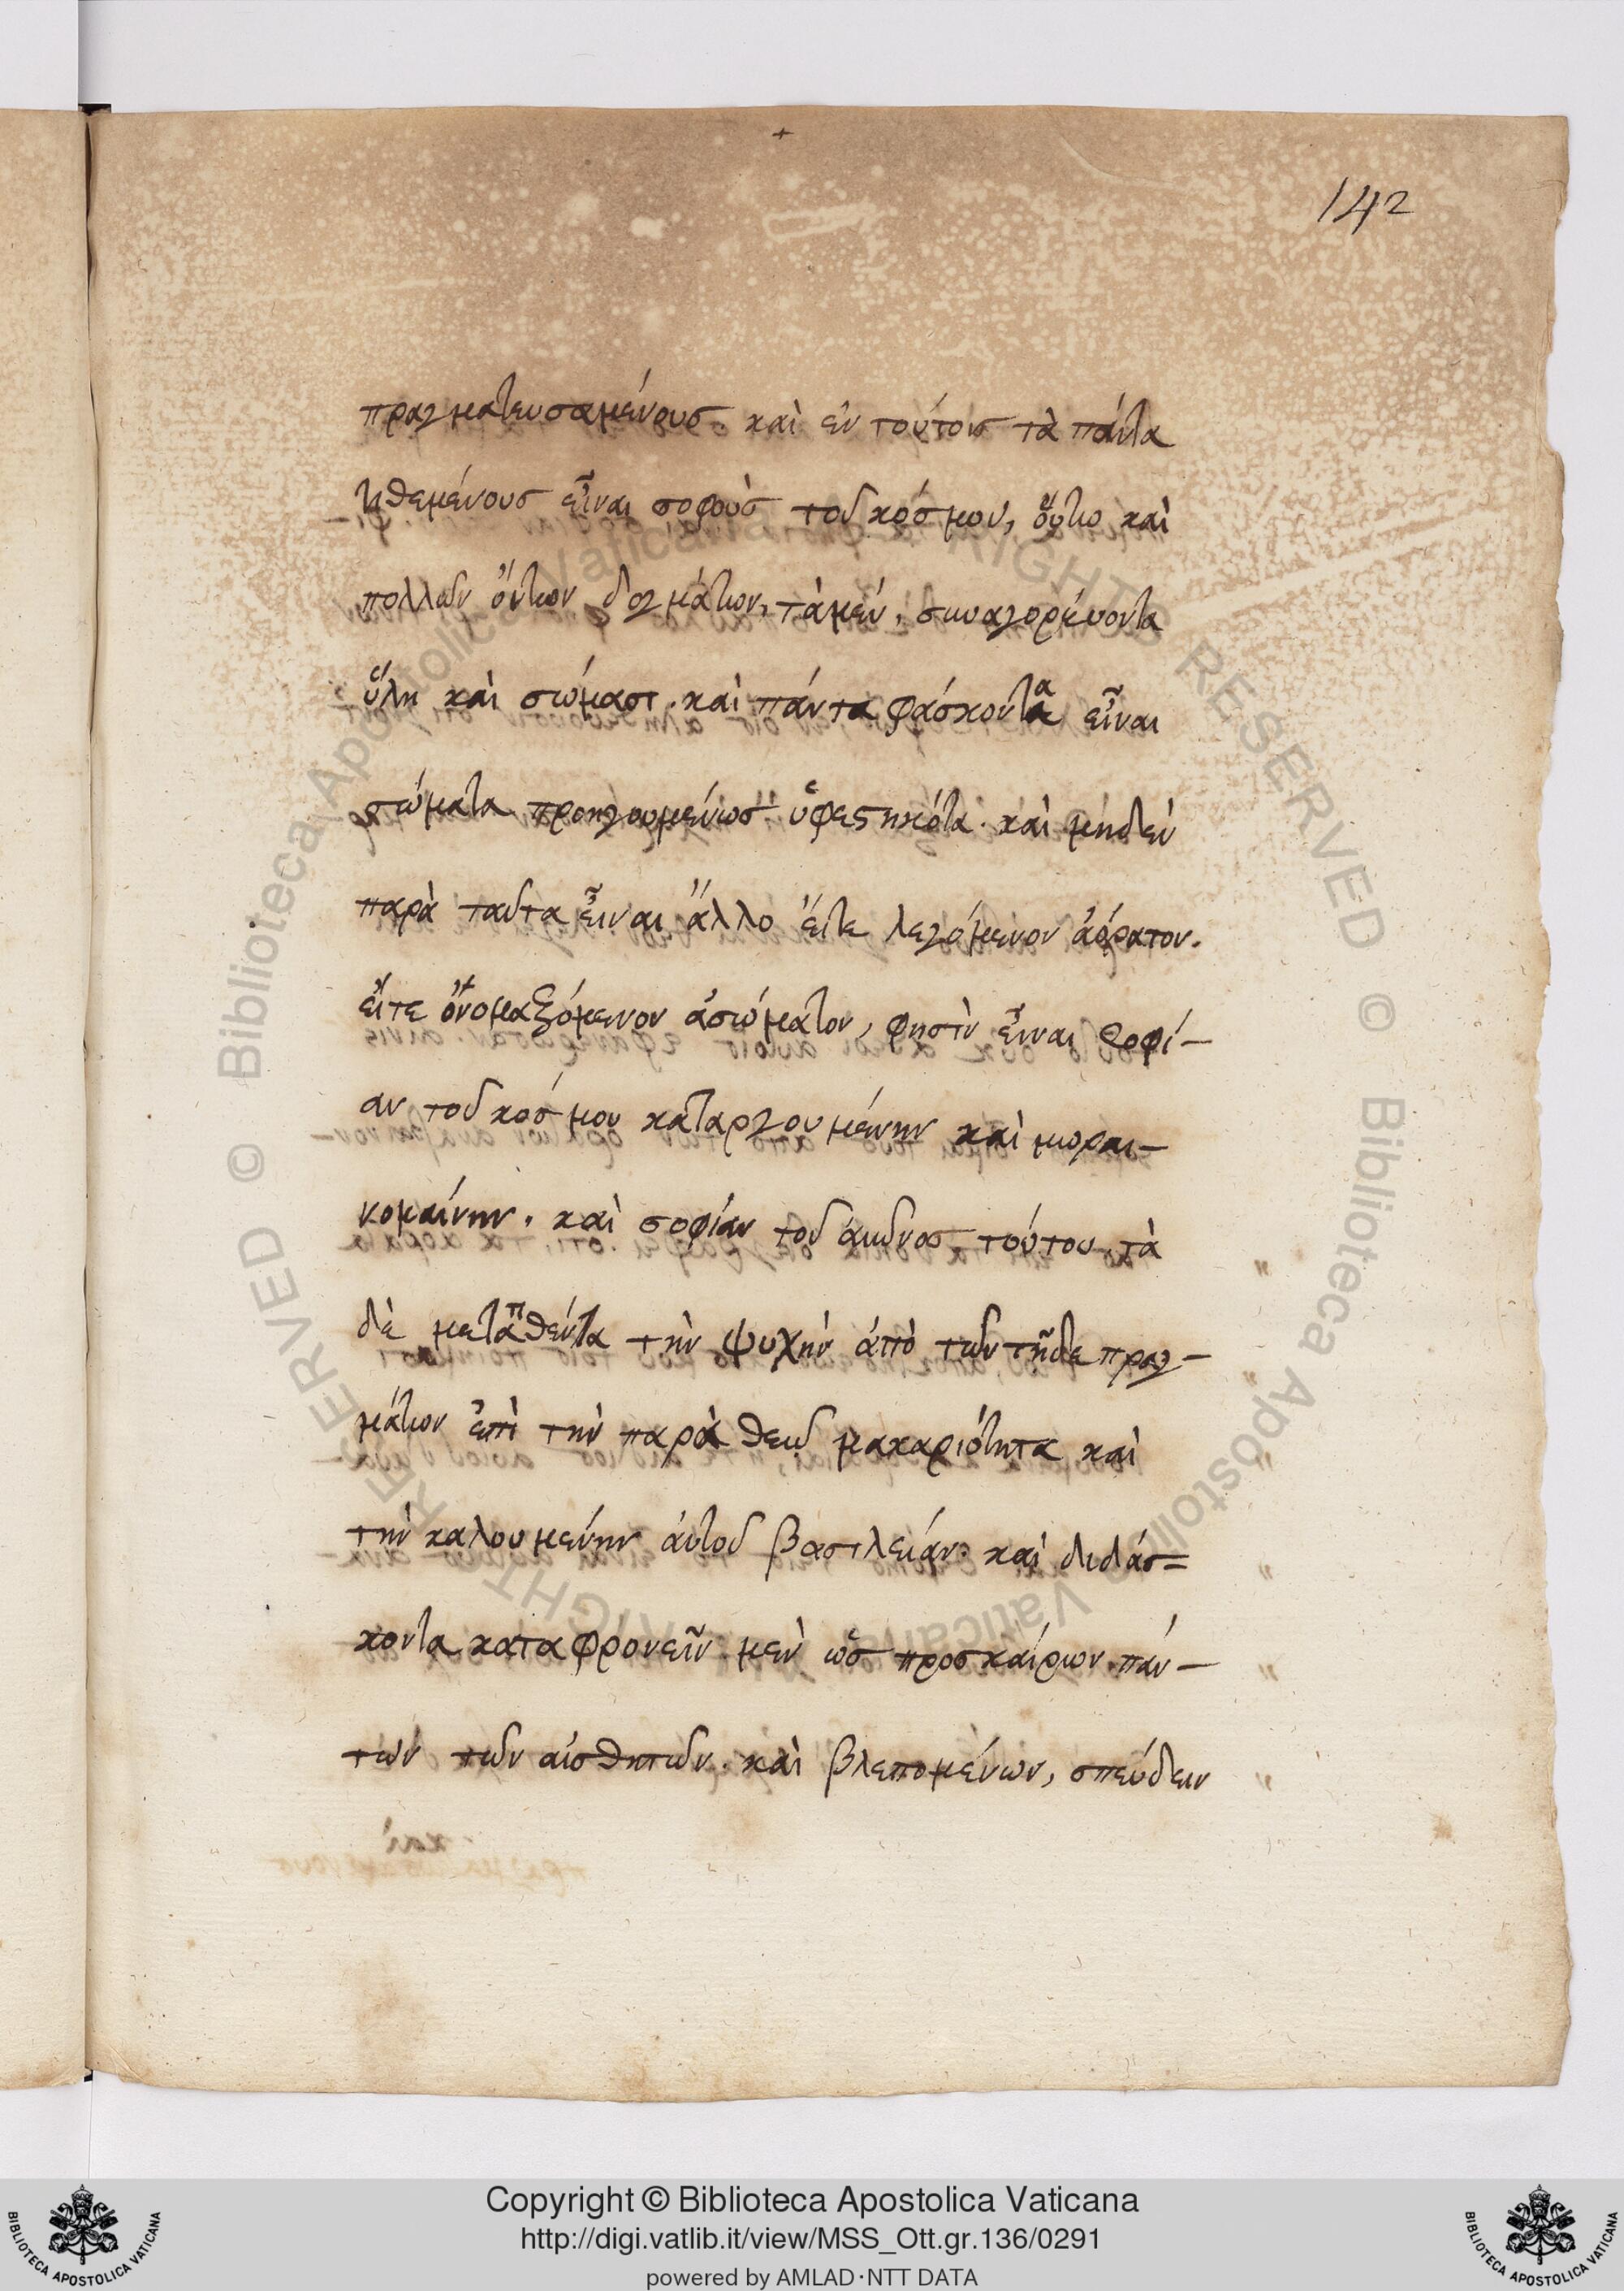 +
142
πραγματευσαμένους. καὶ ἐν τούτοις τὰ πάντα
τιθεμένους εἶναι σοφοὺς τοῦ κόσμου, οὕτω καὶ
πολλῶν ὄντων δογμάτων, τὰ μὲν, συναγορεύοντα
ὕλῃ καὶ σώμασι. καὶ πάντα φάσκοντα εἶναι
σώματα προηγουμένως ὑφεστηκότα. καὶ μηδὲν
παρὰ ταῦτα εἶναι ἄλλο εἴτε λεγόμενον ἀόρατον.
εἴτε ὀνομαζόμενον ἀσώματον, φησὶν εἶναι σοφί-
αν τοῦ κόσμου καταργουμένην καὶ μωραι-
νομένην. καὶ σοφίαν τοῦ αἰῶνος τούτου, τὰ
δὲ μετατιθέντα τὴν ψυχὴν ἀπὸ τῶν τῇδε πραγ-
μάτων ἐπὶ τὴν παρὰ θεῷ μακαριότητα καὶ
τὴν καλουμένην αὐτοῦ βασιλείαν. καὶ διδάσ-
κοντα καταφρονεῖν μὲν ὡς προσκαίρων. πάν-
των τῶν αἰσθητῶν. καὶ βλεπομένων, σπεύδειν
Copyright © Biblioteca Apostolica Vaticana
http://digi.vatlib.it/view/MSS_Ott.gr.136/0291
powered by AMLAD·NTT DATA
BIBLIOTECA APOSTOLICA VATICANA
BIBLIOTECA APOSTOLICA VATICANA
© Biblioteca Apostolica Vaticana RIGHTS RESERVED
© Biblioteca Apostolica Vaticana RIGHTS RESERVED